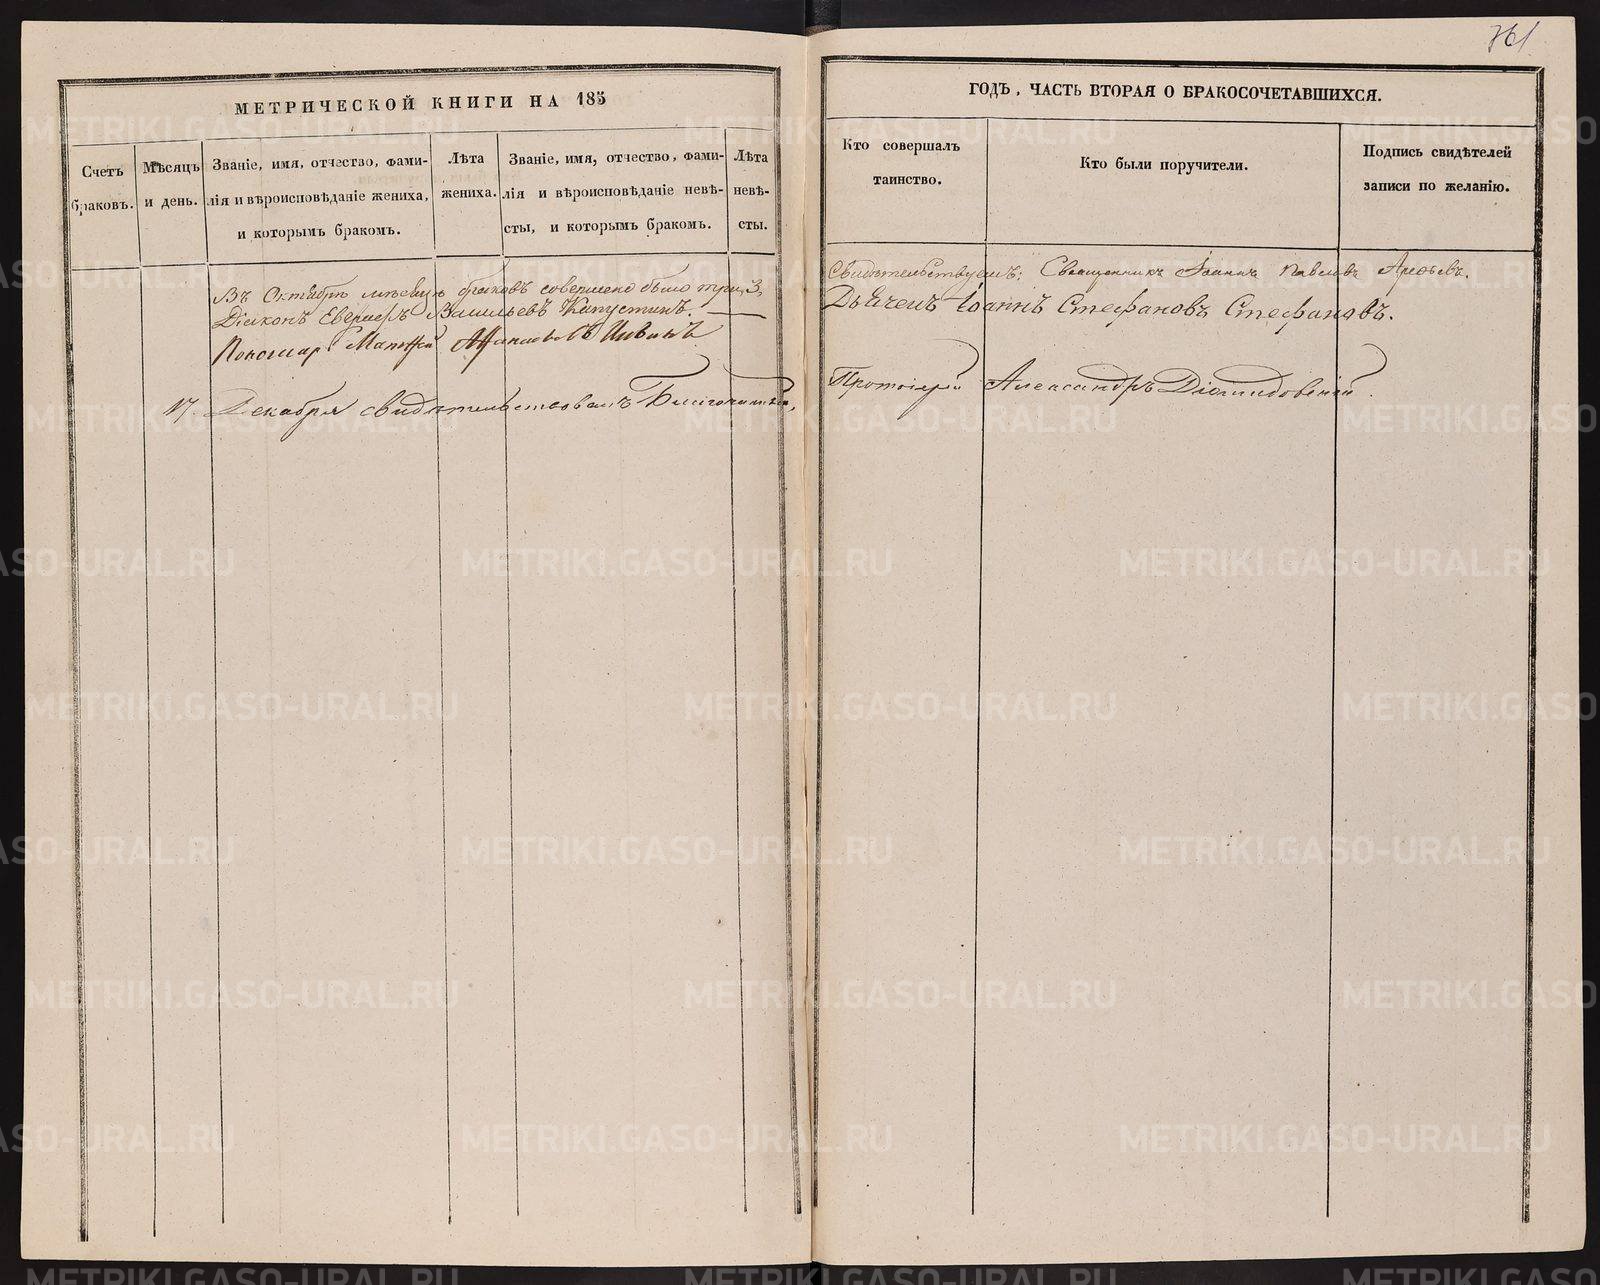 761
МЕТРИЧЕСКОЙ КНИГИ НА 185
Счетъ браковъ.
Мѣсяцъ и день.
Званіе, имя, отчество, фами-
лія и вѣроисповѣданіе жениха,
и которымъ бракомъ.
Лѣта жениха.
Званіе, имя, отчество, фами-
лія и вѣроисповѣданіе невѣ-
сты, и которымъ бракомъ.
Лѣта невѣ-
сты.
ГОДЪ, ЧАСТЬ ВТОРАЯ О БРАКОСОЧЕТАВШИХСЯ.
Кто совершалъ
таинство.
Кто были поручители.
Подпись свидѣтелей
записи по желанію.
Въ Октябрѣ мѣсяцѣ браковъ совершено было три, 3,
Свидѣтельствуемъ: Священникъ Іоаннъ Павловъ
Діаконъ Васильевъ Капустинъ.
Дьячекъ Іоаннъ Стефановъ Стефановъ.
Пономарь Матѳей
17 Декабря свидѣтельствовалъ Благочинный,
Протоіерей Александръ
METRIKI.GASO-URAL.RU